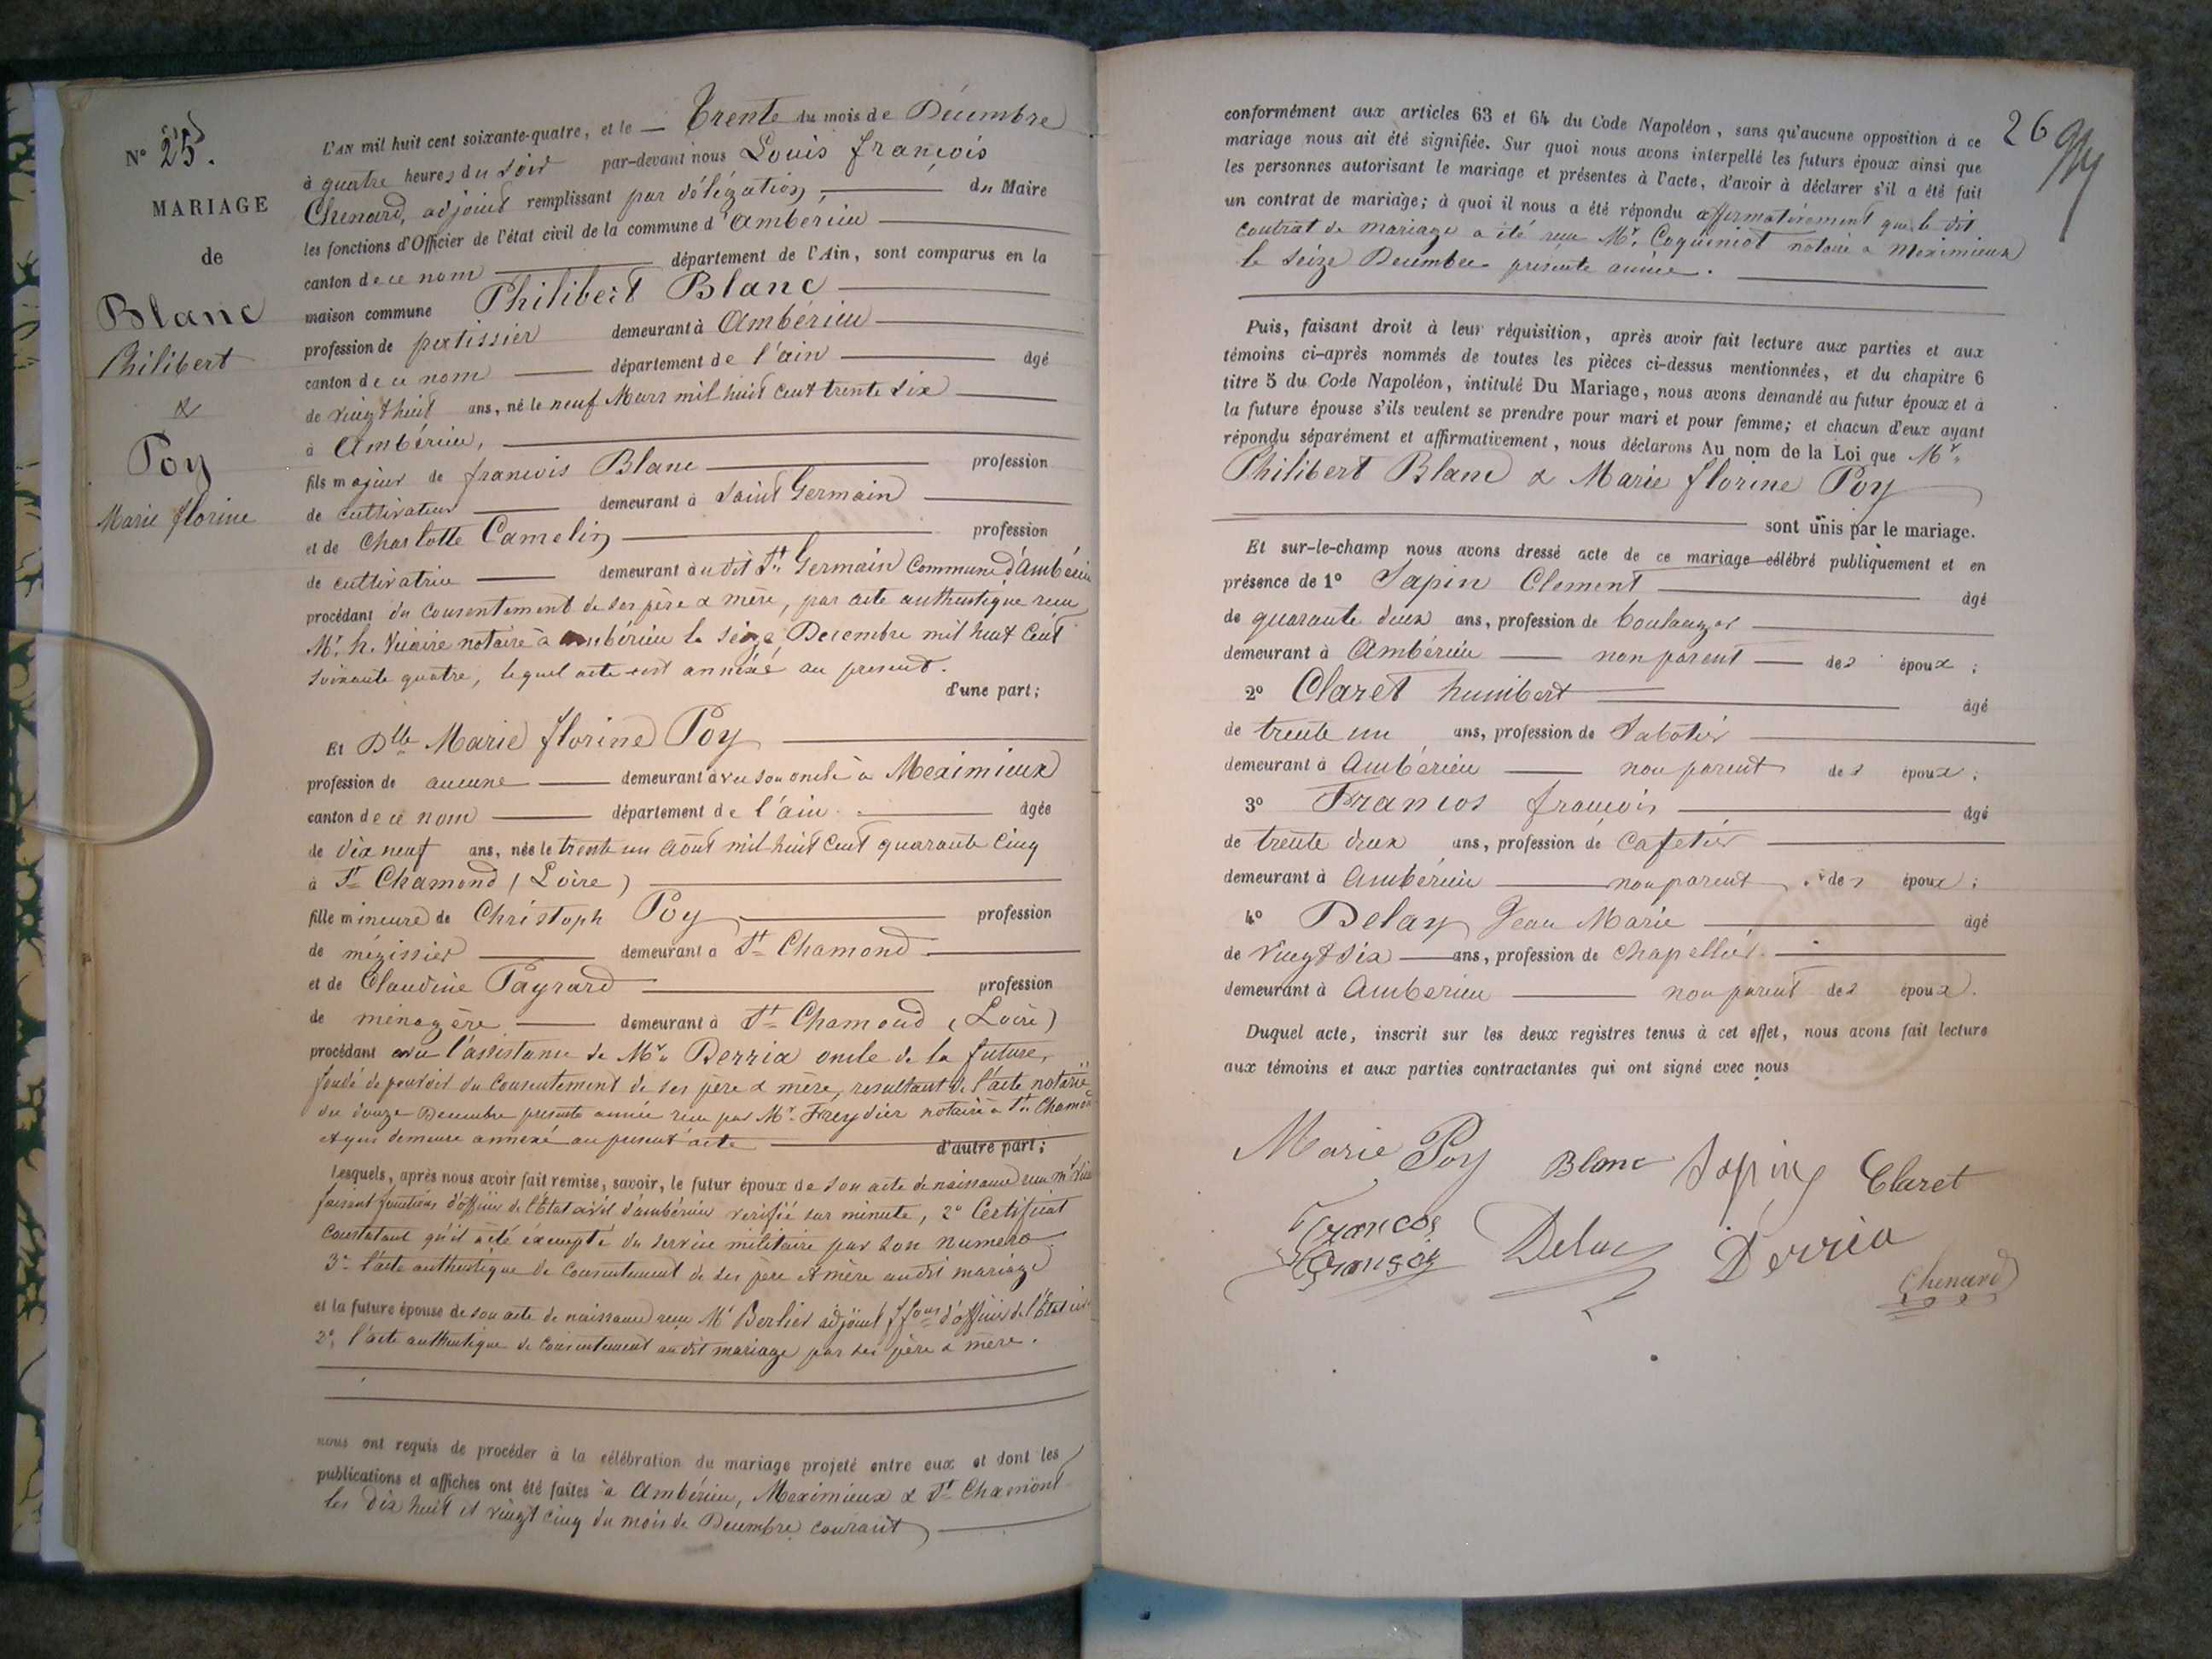 N° 25.
MARIAGE
de
Blanc
Philibert
&
Poy
Marie florine
L'AN mil huit cent soixante-quatre, et le Trente du mois de Décembre
à quatre heures du soir par-devant nous Louis françois
Chenard, adjoint remplissant par délégation du Maire
les fonctions d'Officier de l'état civil de la commune d'ambérieu
canton de ce nom département de l'Ain, sont comparus en la
maison commune Philibert Blanc
profession de patissier demeurant à Ambérieu
canton de ce nom département de l'ain âgé
de vingt huit ans, né le neuf Mars mil huit cent trente six
à Ambérieu,
fils majeur de francois Blanc profession
de cultivateur demeurant à Saint Germain
et de Charlotte Camelin profession
de cultivatrice demeurant au dit St Germain Commune d'Ambérieu
procédant du consentement de ses père & mère, par acte authentique recu
Mr. h. Vicaire notaire à ambérieu le seize Decembre mil huit cent
soixante quatre, lequel acte est annéxé au present.
d'une part;
Et Dlle Marie florine Poy
profession de aucune demeurant avec son oncle à Meximieux
canton de ce nom département de l'ain âgée
de dix neuf ans, née le trente un Août mil huit cent quarante cinq
à St Chamond (Loire)
fille mineure de Christoph Poy profession
de mégissier demeurant a St Chamond
et de Claudine Payrard profession
de ménagère demeurant à St Chamond (Loire)
procédant avec l'assistance de Mr. Derria oncle de la future,
fondé de pouvoir du consentement de ses père & mère, resultant de l'acte notarié
du douze Decembre presente année recu par Mr. Freydier notaire à St. Chamond
et qui demeure annexé au present acte d'autre part;
Lesquels, après nous avoir fait remise, savoir, le futur époux de son acte de naissance recu Mr
faisant fonctions d'officier de l'Etat civil d'ambérieu verifié sur minute, 2° Certificat
constatant qu'il a été éxempté du service militaire par son numero
3° l'acte authentique de consentement de ses père et mère audit mariage
et la future épouse de son acte de naissance recu Mr Berlier adjoint ffons d'officier de l'Etat
2°, l'acte authentique de consentement au dit mariage par ses père & mère.
nous ont requis de procéder à la célébration du mariage projeté entre eux et dont les
publications et affiches ont été faites à Ambérieu, Meximieux & St Chamont
les dix huit et vingt cinq du mois de Decembre courant
26
conformément aux articles 63 et 64 du Code Napoléon, sans qu'aucune opposition à ce
mariage nous ait été signifiée. Sur quoi nous avons interpellé les futurs époux ainsi que
les personnes autorisant le mariage et présentes à l'acte, d'avoir à déclarer s'il a été fait
un contrat de mariage; à quoi il nous a été répondu affirmativement que le dit
contrat de mariage a été recu Mr. Coquiniot notaire à Meximieux
le seize Decembre presente année.
Puis, faisant droit à leur réquisition, après avoir fait lecture aux parties et aux
témoins ci-après nommés de toutes les pièces ci-dessus mentionnées, et du chapitre 6
titre 5 du Code Napoléon, intitulé Du Mariage, nous avons demandé au futur époux et à
la future épouse s'ils veulent se prendre pour mari et pour femme; et chacun d'eux ayant
répondu séparément et affirmativement, nous déclarons Au nom de la Loi que Mr.
Philibert Blanc & Marie florine Poy
sont unis par le mariage.
Et sur-le-champ nous avons dressé acte de ce mariage célébré publiquement et en
présence de 1° Sapin Clement âgé
de quarante deux ans, profession de boulanger
demeurant à Ambérieu non parent des époux;
2° Claret humbert âgé
de trente un ans, profession de Sabotier
demeurant à Ambérieu non parent des époux;
3° Francos françois âgé
de trente deux ans, profession de Cafetier
demeurant à Ambérieu non parent des époux;
4° Delay Jean Marie âgé
de vingt six ans, profession de Chapellier
demeurant à Amberieu non parent des époux.
Duquel acte, inscrit sur les deux registres tenus à cet effet, nous avons fait lecture
aux témoins et aux parties contractantes qui ont signé avec nous
Marie Poy Blanc Sapin Claret
Francos
françois Delay Derria
Chenard